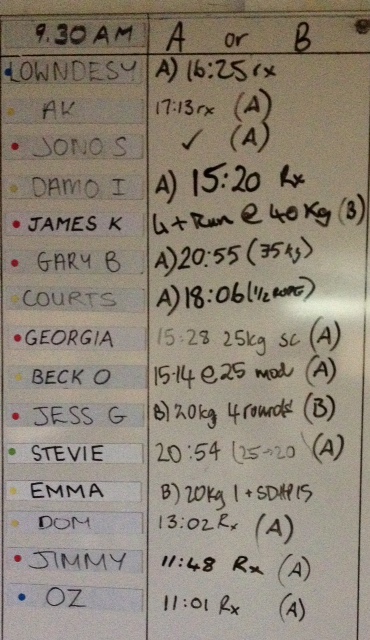 9.30 AM A or B
LOWNDESY A) 16:25 rx
AK 17:13 rx (A)
JONO S ✓ (A)
DAMO I A) 15:20 Rx
JAMES K 4 + Run @ 40kg (B)
GARY B A) 20:55 (35kg)
COURTS A) 18:06 (1/2 ROPE)
GEORGIA 15:28 25kg sc (A)
BECK O 15:14 @ 25 mod (A)
JESS G B) 20kg 4 rounds (B)
STEVIE 20:54 (25→20 (A)
EMMA B) 20kg 1 + SDHP 15
DOM 13:02 Rx (A)
JIMMY 11:48 Rx (A)
OZ 11:01 Rx (A)